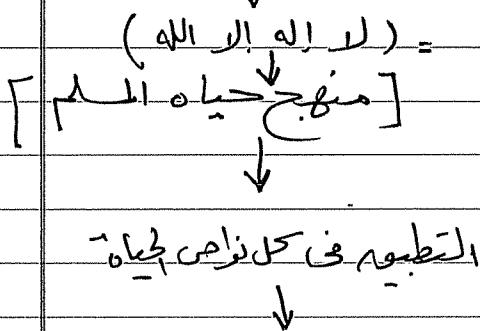 = ( لا إله إلا الله )
[ منهج حياه المسلم ]
التطبيق فى كل نواحى الحياة